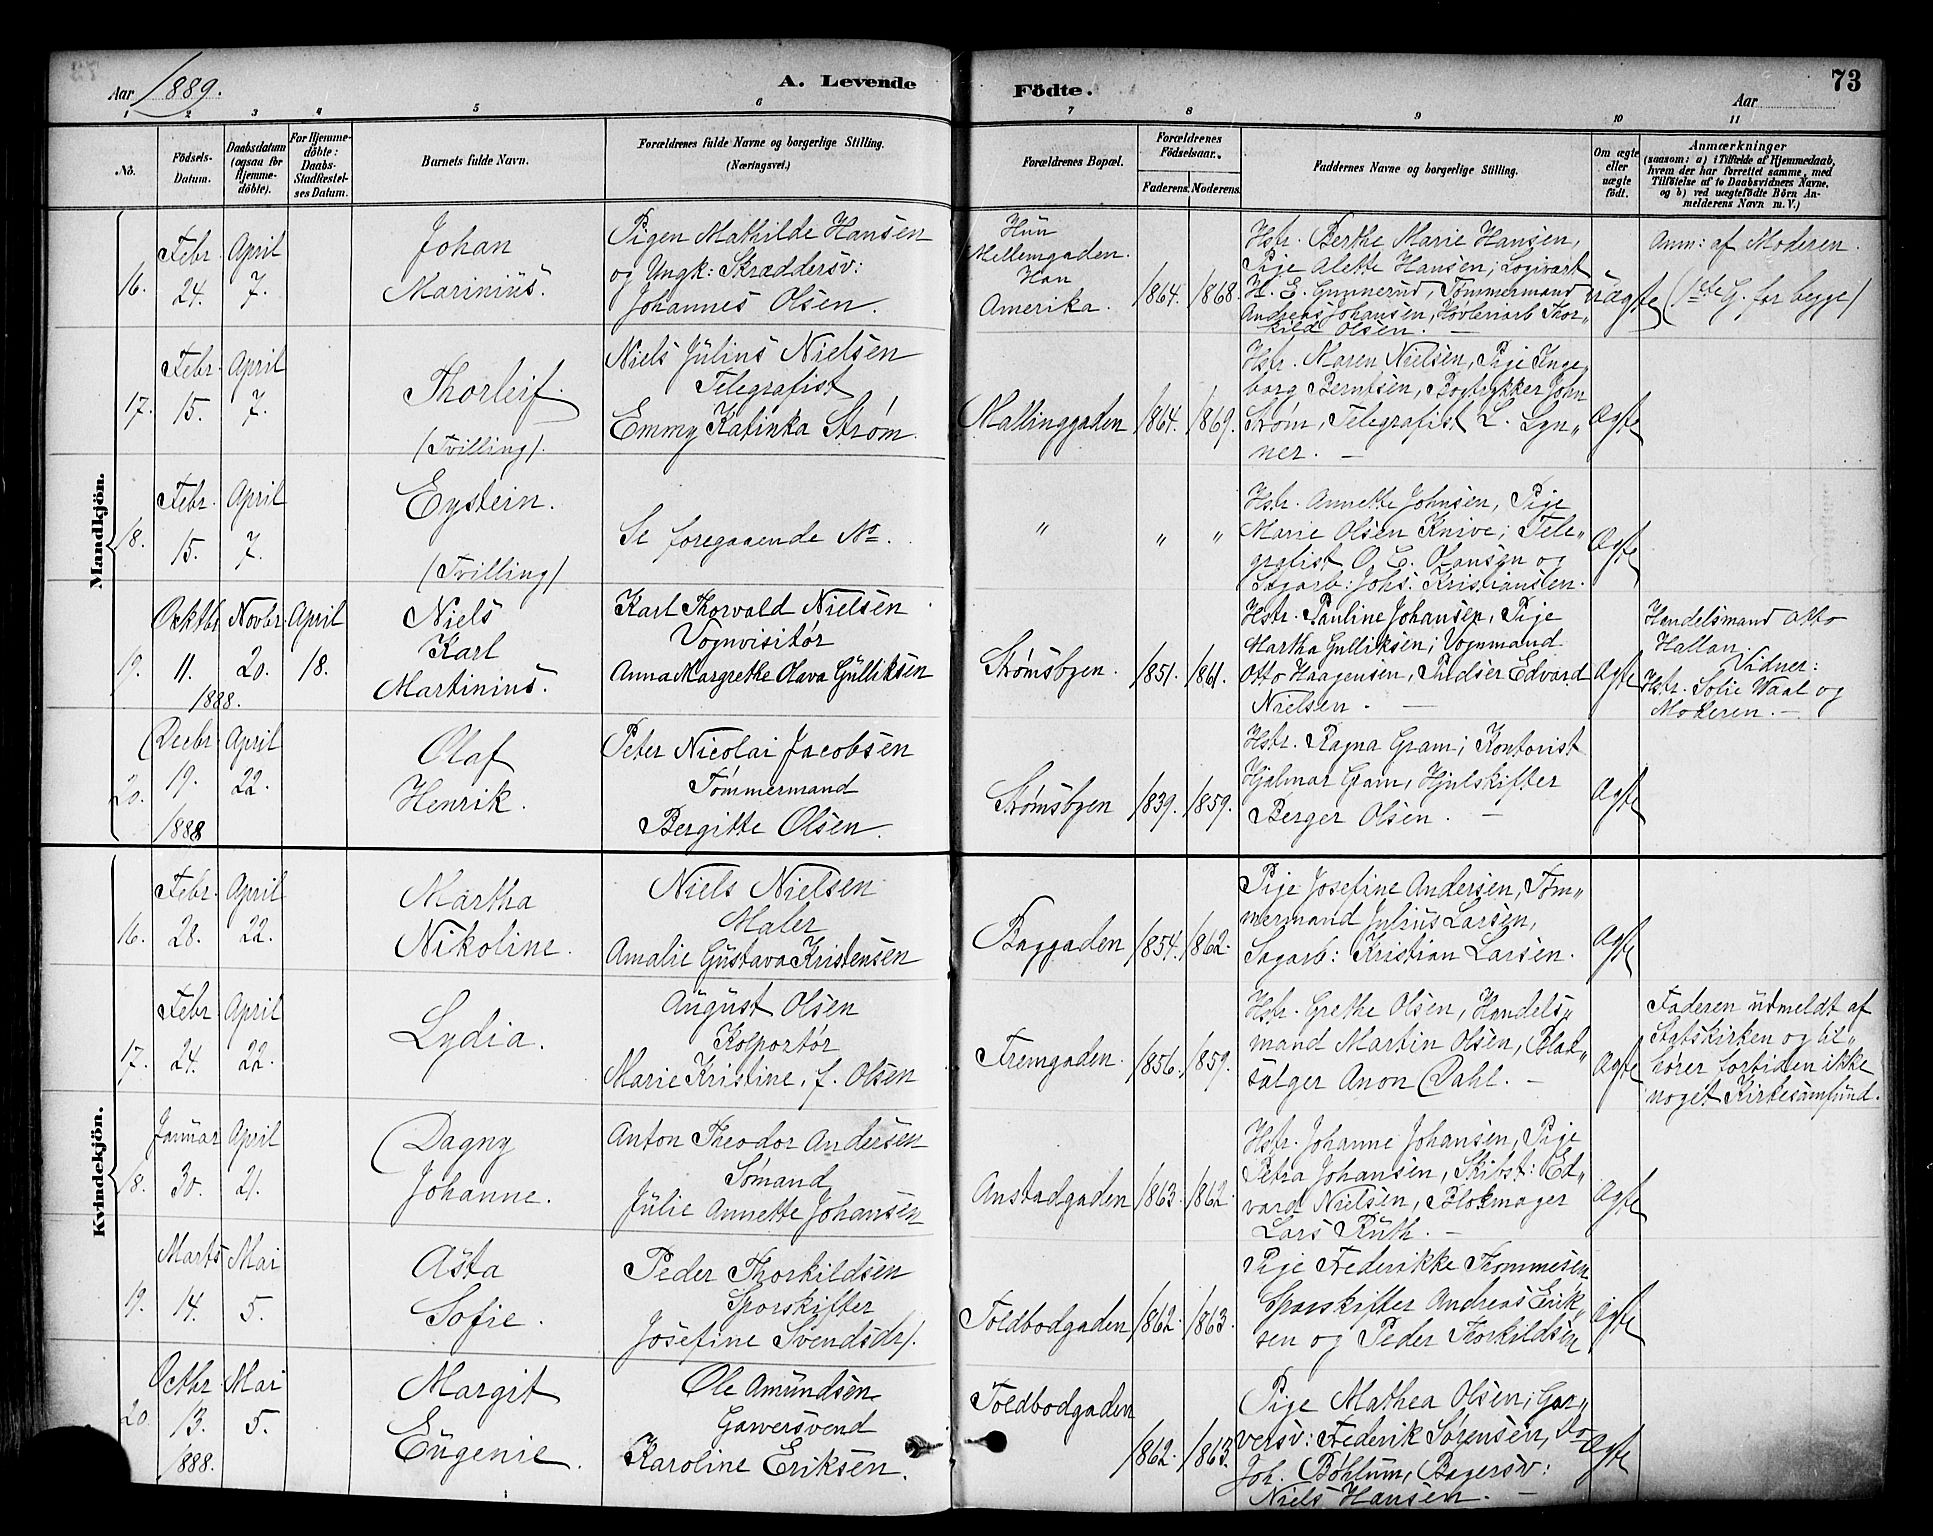 Aar 1889.
A. Levende
Födte.
Aar
73
1 2 3 4 5 6 7 8 9 10 11
No.
Födsels-Datum.
Daabsdatum (ogsaa for Hjemmedöbte).
For Hjemmedöbte: Daabs-Stadfæstelses Datum.
Barnets fulde Navn.
Forældrenes fulde Navne og borgerlige Stilling. (Næringsvei.)
Forældrenes Bopæl.
Forældrenes Födselsaar.
Faderens. Moderens.
Faddernes Navne og borgerlige Stilling.
Om ægte eller uægte födt.
Anmærkninger
(saasom: a) i Tilfælde af Hjemmedaab,
hvem der har forrettet samme, med
Tilföielse af to Daabsvidners Navne,
og b) ved uægtefödte Börn An-
melderens Navn m. V.)
Mandkjön.
16.
Febr. 24.
April 7.
Johan
Marinius.
Pigen Mathilde Hansen
og Ungk: Skræddersv:
Johannes Olsen.
Hun
Mellemgaden.
Han
Amerika.
1864. 1868.
Hstr. Berthe Marie Hansen,
Pige Alette Hansen; Logivært
H. E. Gunnerud, Tømmermand
Andreas Johansen, Høvleriarb Thor-
kild Olsen. —
Uægte
Anm: af Moderen.
(1ste G. for begge)
17.
Febr. 15.
April 7.
Thorleif.
(Tvilling).
Niels Julius Nielsen
Telegrafist
Emmy Katinka Strøm.
Mallinggaden
1864. 1869.
Hstr. Maren Nielsen, Pige Inge-
borg Berntsen, Bogtrykker John
Strøm, Telegrafist L. Lyn-
ner. —
Ægte
18.
Febr. 15.
April 7.
Eystein.
(Tvilling)
Se foregaaende No.
" " "
Hstr. Annette Johnsen, Pige
Marie Olsen Knive; Tele-
grafist O. C. Hansen og
Sagarb: Johs. Kristiansen.
Ægte
19.
Oktbr 11. 1888.
Novbr. 20.
April 18.
Niels
Karl
Martinius.
Karl Thorvald Nielsen
Vognvisitør
Anna Margrethe Olava Gulliksen
Strømsbyen.
1851. 1861.
Hstr. Pauline Johansen, Pige
Martha Gulliksen; Vognmand
Otto Haagensen, Pudser Edvard
Nielsen. —
Ægte
Handelsmand Otto
Hallan.
Vidner:
Hstr. Sofie Waal og
Moderen. —
20.
Decbr. 19. 1888
April 22.
Olaf
Henrik.
Peter Nicolai Jacobsen
Tømmermand
Bergitte Olsen.
Strømsbyen
1839. 1859.
Hstr. Ragna Gram; Kontorist
Hjalmar Gram, Hjulskifter
Berger Olsen. —
Ægte
Kvindekjön.
16.
Febr. 28.
April 22.
Martha
Nikoline.
Niels Nielsen
Maler
Amalie Gustava Kristensen
Baggaden
1854. 1862.
Pige Josefine Andersen, Tøm-
mermand Julius Larsen,
Sagarb: Kristian Larsen.
Ægte
17.
Febr. 24.
April 22.
Lydia.
August Olsen
Kolportør
Marie Kristine, f. Olsen
Fremgaden.
1856. 1859.
Hstr. Grethe Olsen, Handels-
mand Martin Olsen, Blad-
sælger Anon Dahl. —
Ægte
Faderen udmeldt af
Statskirken og til-
hører fortiden ikke
noget Kirkesamfund.
18.
Januar 30.
April 21.
Dagny
Johanne.
Anton Theodor Andersen
Sømand
Julie Annette Johansen
Anstadgaden
1863. 1862.
Hstr. Johanne Johansen, Pige
Petra Johansen, Skibst: Ed-
vard Nielsen, Blokmager
Lars Ruth. —
Ægte
19.
Marts 14.
Mai 5.
Asta
Sofie.
Peder Thorkildsen
Sporskifter
Josefine Svendsdr.
Toldbodgaden
1862. 1863.
Pige Frederikke Thommesen
Sporskifter Andreas Erik-
sen og Peder Thorkildsen
Ægte
20
Octbr 13. 1888.
Mai 5.
Margit
Eugenie.
Ole Amundsen
Garversvend
Karoline Eriksen.
Toldbodgaden
1862. 1863.
Pige Mathea Olsen; Gar-
versv: Frederik Sørensen, Do
Joh. Bøhlum, Bagersv:
Niels Hansen. —
Ægte